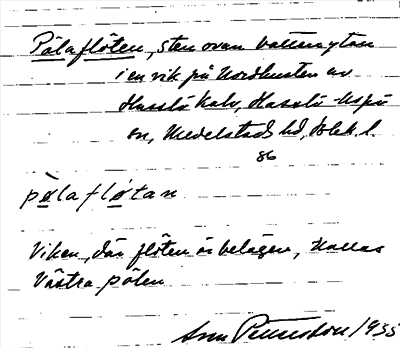 Pölaflöten, sten ovan vattenytan
i en vik på nordkusten av
Hasslö kalv, Hasslö
Medelstads hd, Blek. l.
86
pølafløtan
Viken, där flöten är belägen, kallas
Västra pölen
1935